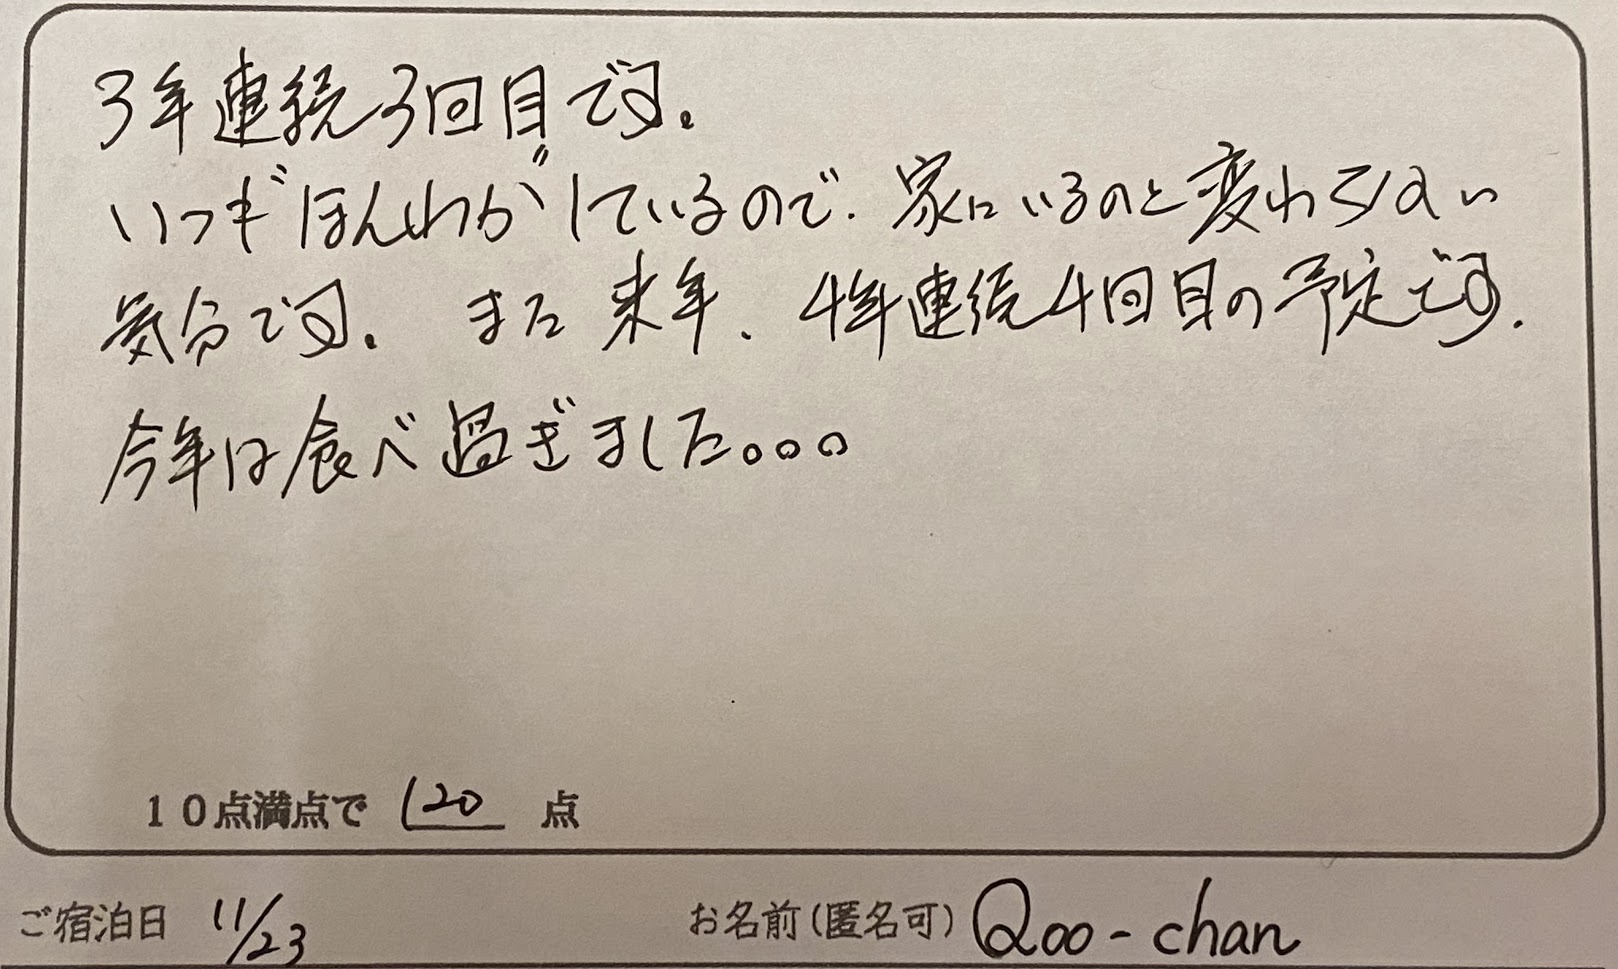 3年連続3回目です。
いつもほんわかしているので、家にいるのと変わらない
気分です。また来年、4年連続4回目の予定です.
今年は食べ過ぎました。。。
10点満点で 120 点
ご宿泊日 11/23
お名前(匿名可) Qoo-chan